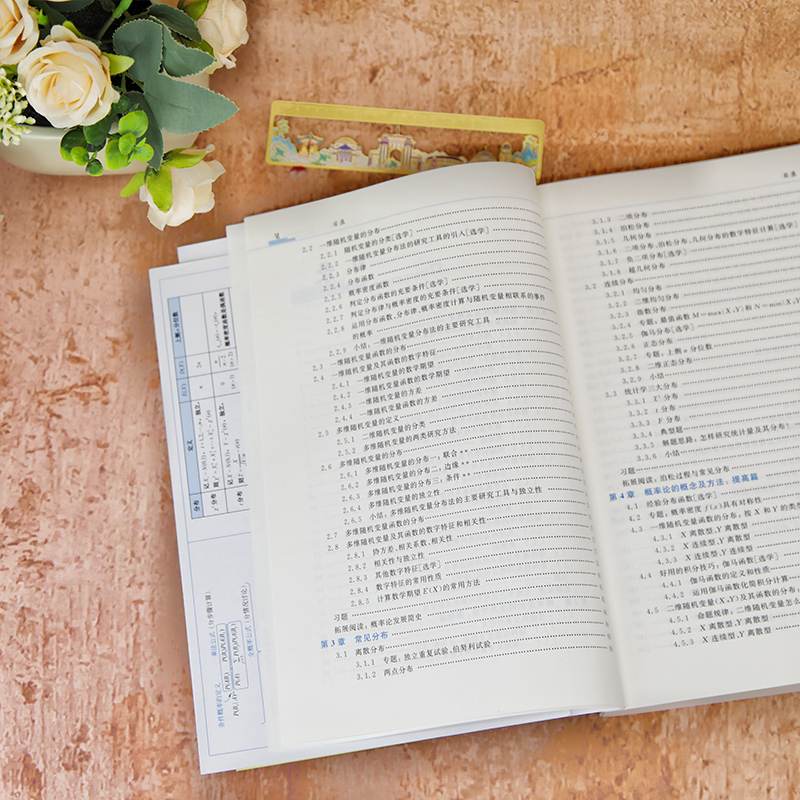 目录
2.2 一维随机变量的分布
2.2.1 随机变量的分类[选学]
2.2.2 一维随机变量分布法的研究工具的引入[选学]
2.2.3 分布律
2.2.4 分布函数
2.2.5 概率密度函数
2.2.6 判定分布函数的充要条件[选学]
2.2.7 判定分布律与概率密度的充要条件[选学]
2.2.8 运用分布函数、分布律、概率密度计算与随机变量相联系的事件
的概率
2.2.9 小结:一维随机变量分布法的主要研究工具
2.3 一维随机变量函数的分布
2.4 一维随机变量及其函数的数字特征
2.4.1 一维随机变量的数学期望
2.4.2 一维随机变量函数的数学期望
2.4.3 一维随机变量的方差
2.4.4 一维随机变量函数的方差
2.5 多维随机变量的定义
2.5.1 二维随机变量的分类
2.5.2 多维随机变量的两类研究方法
2.6 多维随机变量的分布
2.6.1 多维随机变量的分布一:联合**
2.6.2 多维随机变量的分布二:边缘**
2.6.3 多维随机变量的分布三:条件**
2.6.4 多维随机变量的独立性
2.6.5 小结:多维随机变量分布法的主要研究工具与独立性
2.7 多维随机变量函数的分布
2.8 多维随机变量及其函数的数字特征和相关性
2.8.1 协方差、相关系数、相关性
2.8.2 相关性与独立性
2.8.3 其他数字特征[选学]
2.8.4 数字特征的常用性质
2.8.5 计算数学期望E(X)的常用方法
习题
拓展阅读:概率论发展简史
第3章 常见分布
3.1 离散分布
3.1.1 专题:独立重复试验、伯努利试验
3.1.2 两点分布
目录
3.1.3 二项分布
3.1.4 泊松分布
3.1.5 几何分布
3.1.6 二项分布、泊松分布、几何分布的数字特征计算[选学]
3.1.7 负二项分布[选学]
3.1.8 超几何分布
3.2 连续分布
3.2.1 均匀分布
3.2.2 二维均匀分布
3.2.3 指数分布
3.2.4 专题:最值函数M=max(X,Y)和N=min(X,Y)
3.2.5 伽马分布[选学]
3.2.6 正态分布
3.2.7 专题:上侧α分位数
3.2.8 二维正态分布
3.2.9 小结
3.3 统计学三大分布
3.3.1 X²分布
3.3.2 t分布
3.3.3 F分布
3.3.4 典型题
3.3.5 解题思路:怎样研究统计量及其分布?
3.3.6 小结
习题
拓展阅读:泊松过程与常见分布
第4章 概率论的概念及方法:提高篇
4.1 经验分布函数[选学]
4.2 专题:概率密度f(x)具有对称性
4.3 一维随机变量函数的分布:按X和Y的类型
4.3.1 X离散型,Y离散型
4.3.2 X连续型,Y离散型
4.3.3 X连续型,Y连续型
4.4 好用的积分技巧:伽马函数[选学]
4.4.1 伽马函数的定义和性质
4.4.2 运用伽马函数化简积分计算
4.5 二维随机变量(X,Y)及其函数的分布
4.5.1 命题规律:二维随机变量怎么
4.5.2 X离散型,Y离散型
4.5.3 X连续型,Y离散型
分布
定义
上侧α分位数
条件概率的定义
乘法公式(分步骤计算)
全概率公式(分情况讨论)